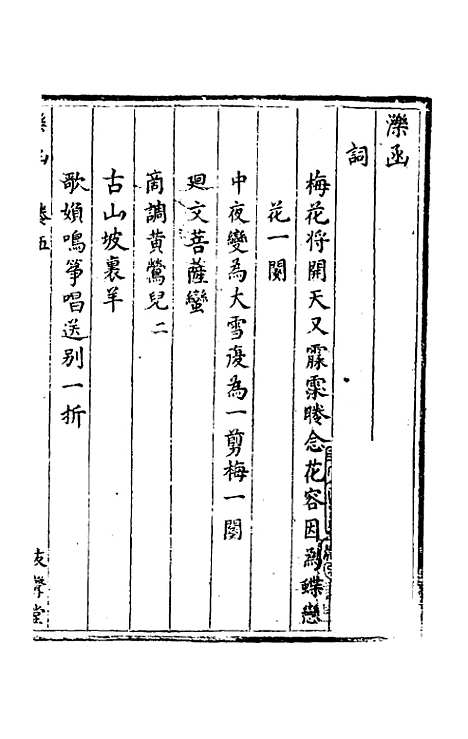 濼函
詞
梅花将開天又霢霂賸念花容因爲蝶戀
花一闋
中夜變為大雪復為一剪梅一闋
廻文菩薩蠻
商調黄鶯兒二
古山坡裏羊
歌嬪鳴筝唱送别一折
濼函 卷五 友聲堂